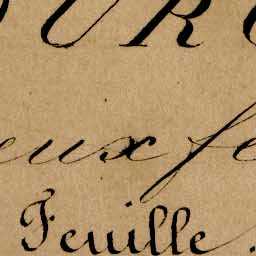 OURG
eux fe
Feuille.